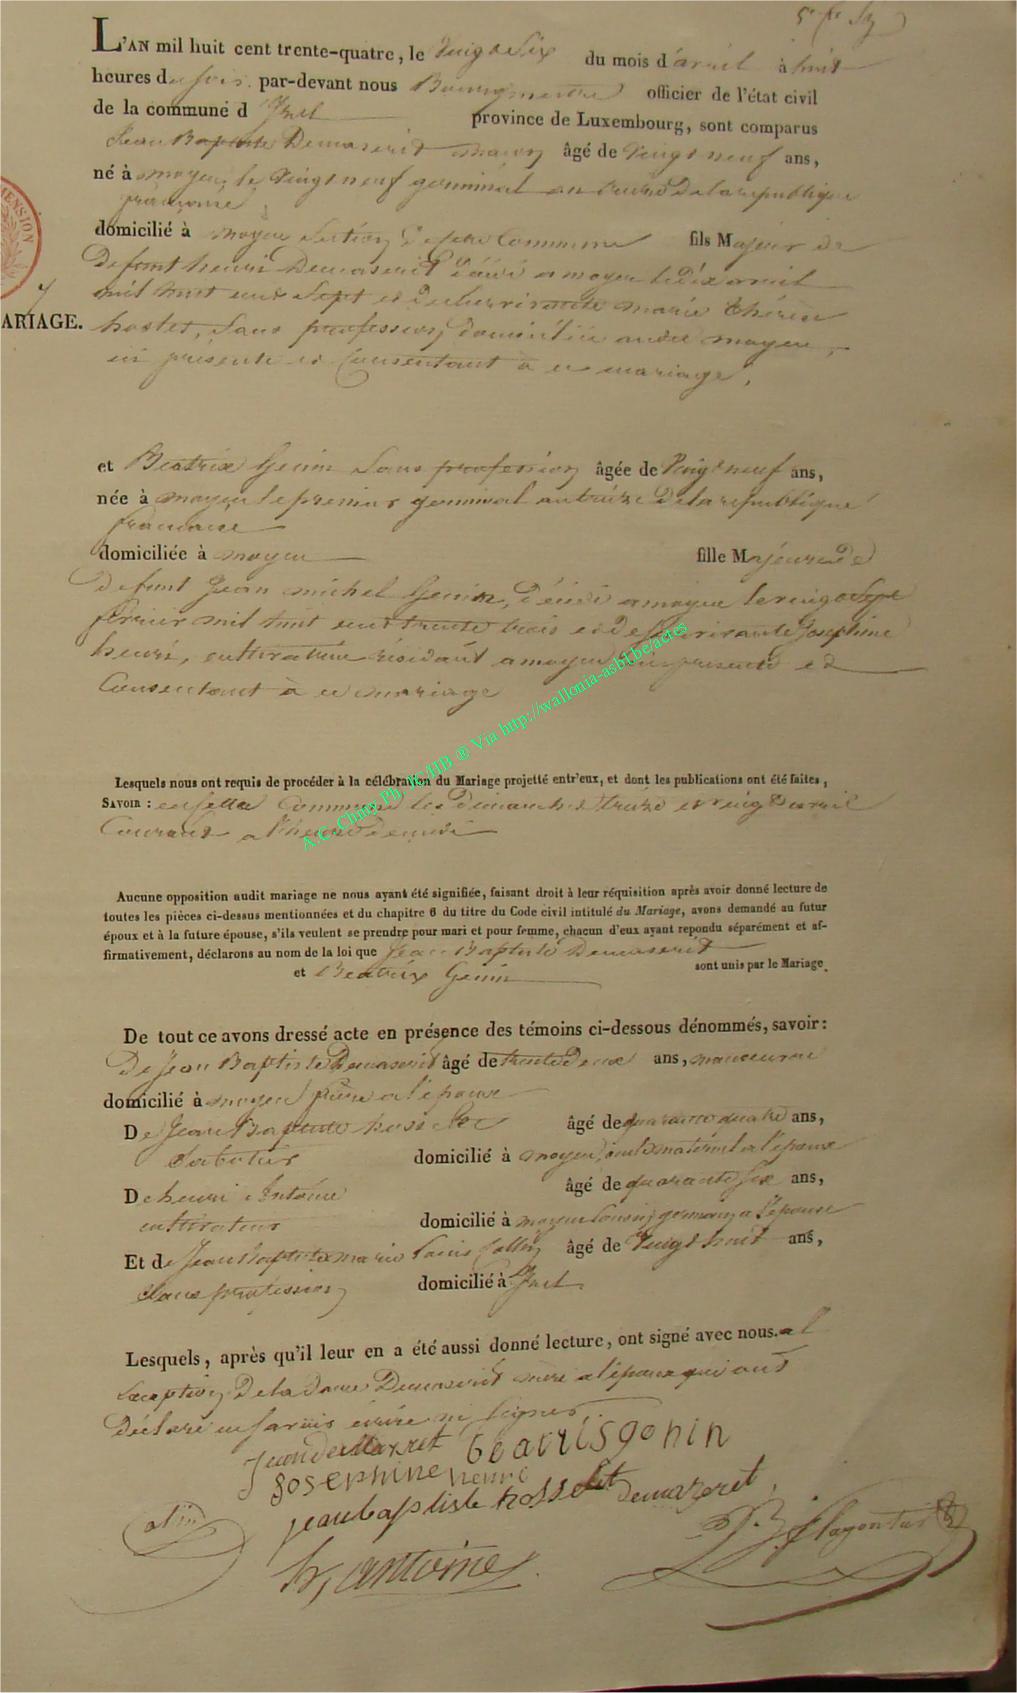 L'AN mil huit cent trente-quatre, le vingt Six du mois d'avril à huit
heures du soir par-devant nous Bourgmestre officier de l'état civil
de la commune d'Izel province de Luxembourg, sont comparus
Jean Baptiste Demaseret maçon âgé de vingt neuf ans,
né à moyen, le vingt neuf germinal an treize de la republique
française
domicilié à moyen Section de cette Commune fils Majeur de
Defunt henri Demaseret décédé a moyen le dix avril
mil huit cent Sept et de Survivante marie thérèse
hosselet, Sans profession, domiciliée audit moyen,
ici présente et Consentant à ce mariage,
ARIAGE.
et Beatrix Genin Sans profession âgée de vingt neuf ans,
née à moyen le premier germinal an treize de la republique
française
domiciliée à moyen fille Majeure de
Defunt Jean michel Genin, décédé a moyen le vingt Sept
fevrier mil huit cent trente trois et de Survivante Josephine
henri, cultivatrice résidant a moyen ici presente et
Consentant à ce mariage
Lesquels nous ont requis de procéder à la célébration du Mariage projetté entr'eux, et dont les publications ont été faites,
SAVOIR : en cette Commune les Dimanches treize et vingt avril
Courant a l'heure de midi
Aucune opposition audit mariage ne nous ayant été signifiée, faisant droit à leur réquisition après avoir donné lecture de
toutes les pièces ci-dessus mentionnées et du chapitre 6 du titre du Code civil intitulé du Mariage, avons demandé au futur
époux et à la future épouse, s'ils veulent se prendre pour mari et pour femme, chacun d'eux ayant repondu séparément et af-
firmativement, déclarons au nom de la loi que Jean Baptiste Demaseret
et Beatrix Genin sont unis par le Mariage.
De tout ce avons dressé acte en présence des témoins ci-dessous dénommés, savoir :
De Jean Baptiste Demaseret âgé de trente Deux ans, manoeuvre
domicilié à moyen frère a l'epoux
De Jean Baptiste hosselet âgé de quarante quatre ans,
Sabotier domicilié à moyen, oncle maternel a l'epoux
De henri Antoine âgé de quarante Six ans,
cultivateur domicilié à moyen Cousin germain a l'epouse
Et de Jean Baptiste marie Louis Collin âgé de vingt huit ans,
Sans profession domicilié à Izel
Lesquels, après qu'il leur en a été aussi donné lecture, ont signé avec nous. a l
Exception De la Dame Demaseret mère a l'epoux qui a
Déclaré ne Savoir écrire ni Signer
Jean demazeret beatris genin
Josephine henri
jeanbaptiste hosselet demazeret
hy antoine
A.C. Chiny Ph. W-HB @ Via http://wallonia-asbl.be/actes